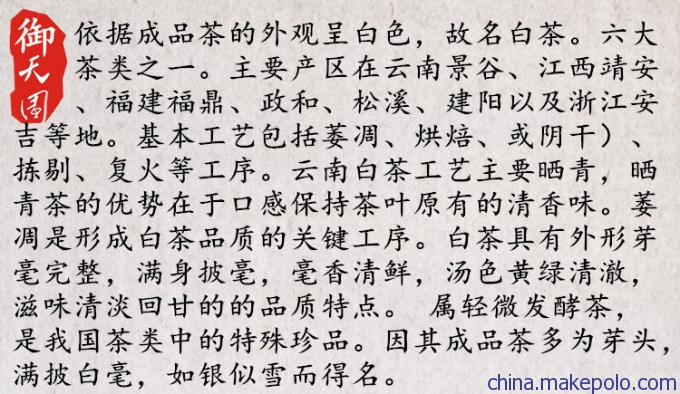 御天圆
依据成品茶的外观呈白色，故名白茶。六大
茶类之一。主要产区在云南景谷、江西靖安
、福建福鼎、政和、松溪、建阳以及浙江安
吉等地。基本工艺包括萎凋、烘焙、或阴干）、
拣剔、复火等工序。云南白茶工艺主要晒青，晒
青茶的优势在于口感保持茶叶原有的清香味。萎
凋是形成白茶品质的关键工序。白茶具有外形芽
毫完整，满身披毫，毫香清鲜，汤色黄绿清澈，
滋味清淡回甘的的品质特点。 属轻微发酵茶，
是我国茶类中的特殊珍品。因其成品茶多为芽头，
满披白毫，如银似雪而得名。
china.makepolo.com